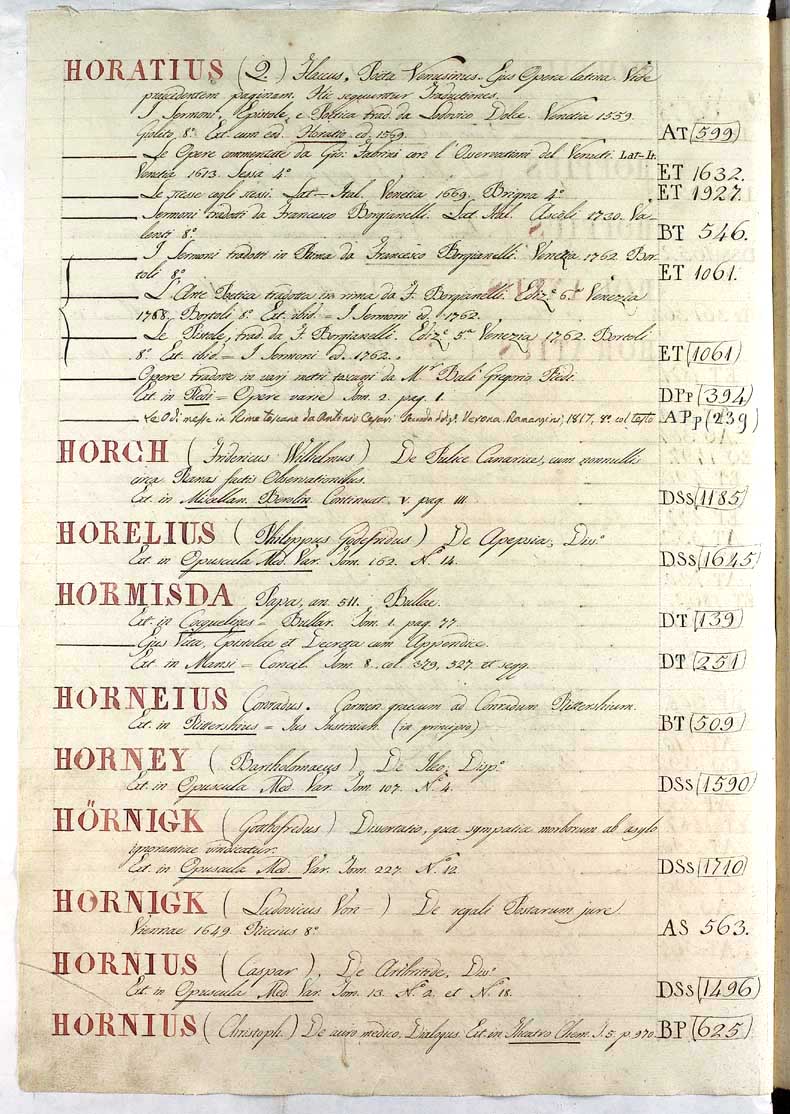 HORATIUS (Q.) Flaccus, Poëta Venusinus. Ejus Opera latina. Vide
præcedentem paginam. Hic sequuntur Traductiones.
I Sermoni, Epistole, e Poetica trad. da Lodovico Dolce. Venetia 1559.
Giolito, 8º. Ext. cum ed. Horatio ed. 1559. AT (599)
Le Opere commentate da Gio: Fabrini con l'Osservationi del Venuti. Lat-It.
Venetia 1613. Sessa 4º ET 1632.
Le stesse cogli stessi. Lat-Ital. Venetia 1669. Brigna 4º ET 1927.
Sermoni tradotti da Francesco Borgianelli. Lat. Ital. Ascoli 1730. Va-
lenti 8º. BT 546.
I Sermoni tradotti in Rima da Francesco Borgianelli. Venezia 1762. Bor-
toli 8º ET 1061.
L'Arte Poetica tradotta in rima da F. Borgianelli. Edizº 6ª Venezia
1768. Bortoli 8º Ext. ibid = I Sermoni ed. 1762.
Le Pistole, trad. da F. Borgianelli. Edizº 5ª Venezia 1762. Bortoli
8º Ext. ibid = I Sermoni ed. 1762. ET (1061)
Opere tradotte in varj metri toscani da Mr Balì Gregorio Redi.
Ext. in Redi = Opere varie Tom. 2. pag. 1. DPp (394)
Le Odi messe in Rime toscane da Antonio Cesari Seconda Ediz. Verona. Ramanzini, 1817, 8º. col testo APp (239)
HORCH (Fridericus Wilhelmus) De Pulice Canariae, cum nonnullis
circa Ranas factis Observationibus.
Ext. in Miscellan. Berolin Continuat. V. pag. 111. DSs (1185)
HORELIUS (Philippus Godefridus) De Apepsia, Disº
Ext. in Opuscula Med. Var. Tom. 162. Nº 14. DSs (1645)
HORMISDA Papa, an. 511. Bullae.
Ext. in Cocquelines = Bullar. Tom. 1. pag. 77. DT (139)
Ejus Vita, Epistolae et Decreta cum Appendice.
Ext. in Mansi = Concil. Tom. 8. col. 379, 527. et seqq. DT (251)
HORNEIUS Conradus. Carmen graecum ad Conradum Rittershium.
Ext. in Rittershius = Jus Justinian. (in principio) BT (509)
HORNEY (Bartholmaeus) De Ileo, Dispº
Ext. in Opuscula Med. Var. Tom. 107. Nº 4. DSs (1590)
HÖRNIGK (Gothofredus) Dissertatio, qua sympatia morborum ab asylo
ignorantiae vindicatur.
Ext. in Opuscula Med. Var. Tom. 227. Nº 12. DSs (1710)
HORNIGK (Ludovicus Von-) De regali Postarum jure.
Viennae 1649. Riccius 8º AS 563.
HORNIUS (Caspar), De Arthritide, Disº
Ext. in Opuscula Med. Var. Tom. 13. Nº 2. et Nº 18. DSs (1496)
HORNIUS (Christoph.) De auro medico, Dialogus. Ext. in Theatro Chem. T. 5. p. 970. BP (625)